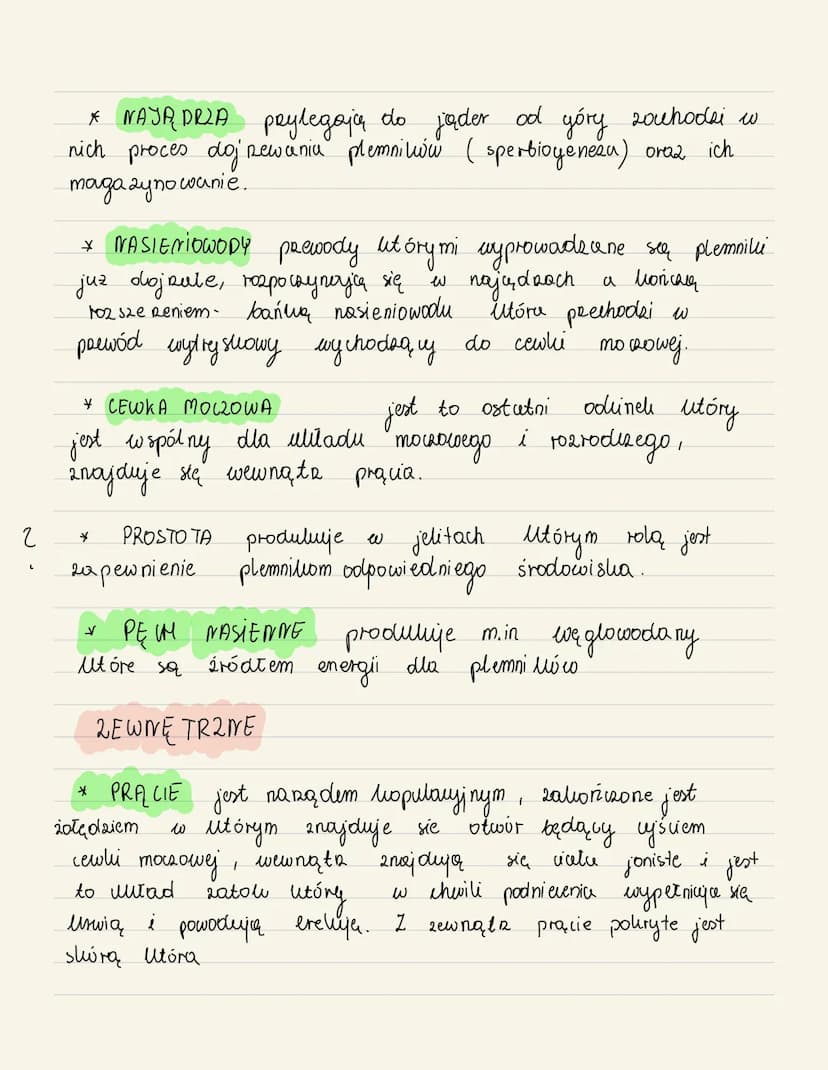 * NAJĄDRZA przylegają do jąder od góry zachodzi w
nich proces dojrzewania plemników ( sperbiogeneza) oraz ich
magazynowanie.
* NASIENIOWODY przewody którymi wyprowadzane są plemniki
już dojrzałe, rozpoczynają się w najądrzach a kończą
rozszerzeniem- bańką nasieniowodu która przechodzi w
przewód wytryskowy wychodzący do cewki moczowej.
* CEWKA MOCZOWA jest to ostatni odcinek który
jest wspólny dla układu moczowego i rozrodczego,
znajduje się wewnątrz prącia.
? * PROSTOTA produkuje w jelitach którym rolą jest
zapewnienie plemnikom odpowiedniego środowiska.
* PĘCH NASIENNE produkuje m.in węglowodany
które są źródłem energii dla plemników
ZEWNĘTRZNE
* PRĄCIE jest narządem kopulacyjnym, zakończone jest
żołędziem w którym znajduje sie otwór będący ujściem
cewki moczowej, wewnątrz znajdują się ciała joniste i jest
to układ zatok który w chwili podniecenia wypełniają się
krwią i powodują erekcję. Z zewnątrz prącie pokryte jest
skórą która